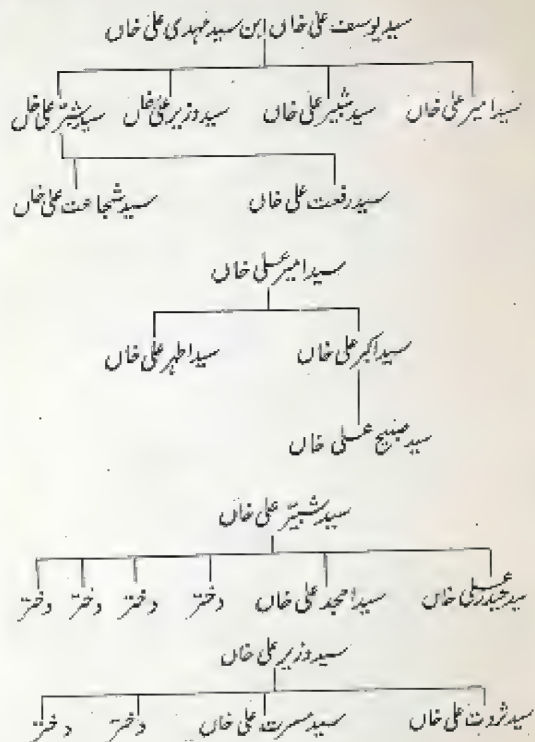 سید یوسف علی خاں ابن سید مہدی علی خاں
سید امیر علی خاں سید شبیر علی خاں سید وزیر علی خاں سید شبّر علی خاں
سید رفعت علی خاں سید شجاعت علی خاں
سید امیر علی خاں
سید اکبر علی خاں سید اطہر علی خاں
سید علی خاں
سید شبیر علی خاں
سید حیدر علی خاں سید امجد علی خاں دختر دختر دختر دختر
سید وزیر علی خاں
سید ثروت علی خاں سید مسرت علی خاں دختر دختر